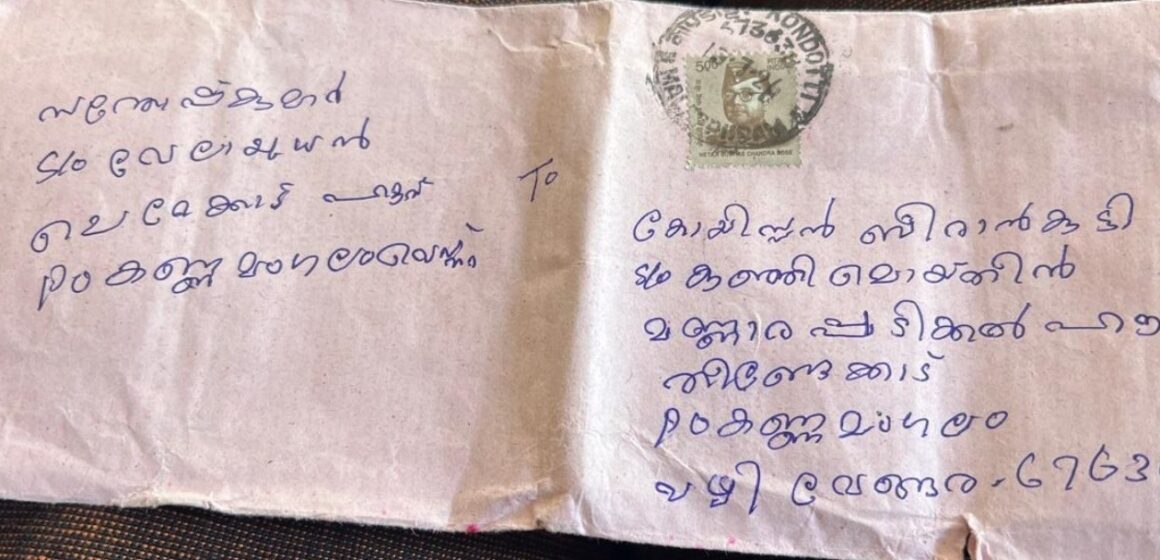 സന്തോഷ്കുമാർ
S/o വേലായുധൻ
PO കണ്ണമംഗലംവെസ്റ്റ്
KONDOTTI
500
NETAJI SUBHAS CHANDRA BOSE
To
കോയിസ്സൻ ബീരാൻകുട്ടി
S/o കുഞ്ഞിമൊയ്തീൻ
മണ്ണാരപ്പടിക്കൽ
തീണ്ടേക്കാട്
PO കണ്ണമംഗലം
വഴി വേങ്ങര. 6763